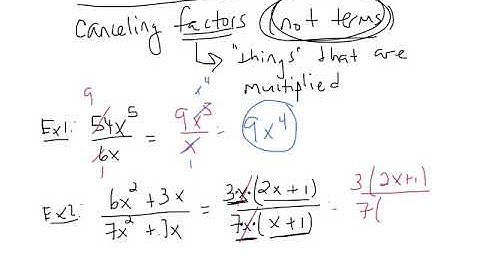 canceling factors (not terms)
↳ "things" that are
multiplied
Ex1: 54x^5/6x = 9x^5/x = 9x^4
9 1 x^4 1
Ex2: 6x^2+3x/7x^2+7x = 3·x·(2x+1)/7·x·(x+1) = 3(2x+1)/7(